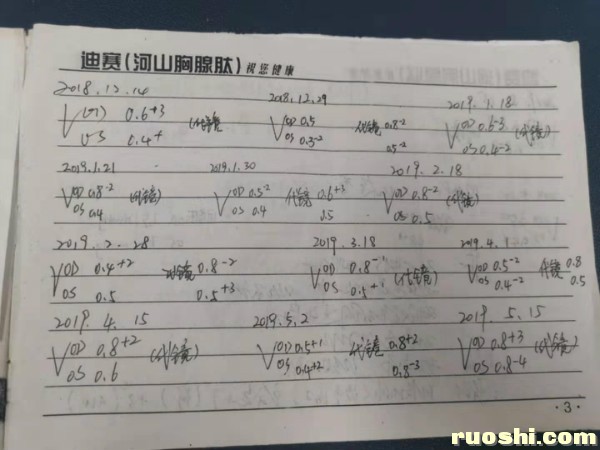 迪赛(河山胸腺肽)祝您健康
2018.12.14 2018.12.29 2019.1.18
V OD 0.6+3 (戴镜) V OD 0.5 戴镜 0.8-2 V OD 0.6-3 (戴镜)
OS 0.4+ OS 0.3-2 0.5-2 OS 0.4-2
2019.1.21 2019.1.30 2019.2.18
V OD 0.8-2 (戴镜) V OD 0.5-2 代镜 0.6+3 V OD 0.8-2 (代镜)
OS 0.4 OS 0.4 OS 0.5
2019.2.28 2019.3.18 2019.4.1
V OD 0.4+2 代镜 0.8-2 V OD 0.8-1 (代镜) V OD 0.5-2 代镜 0.8
OS 0.5 0.5+3 OS 0.5+1 OS 0.4-2 0.5
2019.4.15 2019.5.2 2019.5.15
V OD 0.8+2 (代镜) V OD 0.5+1 代镜 0.8+2 V OD 0.8+3 (代镜)
OS 0.6 OS 0.4+2 0.8-3 OS 0.8-4
·3·
ruoshi.com